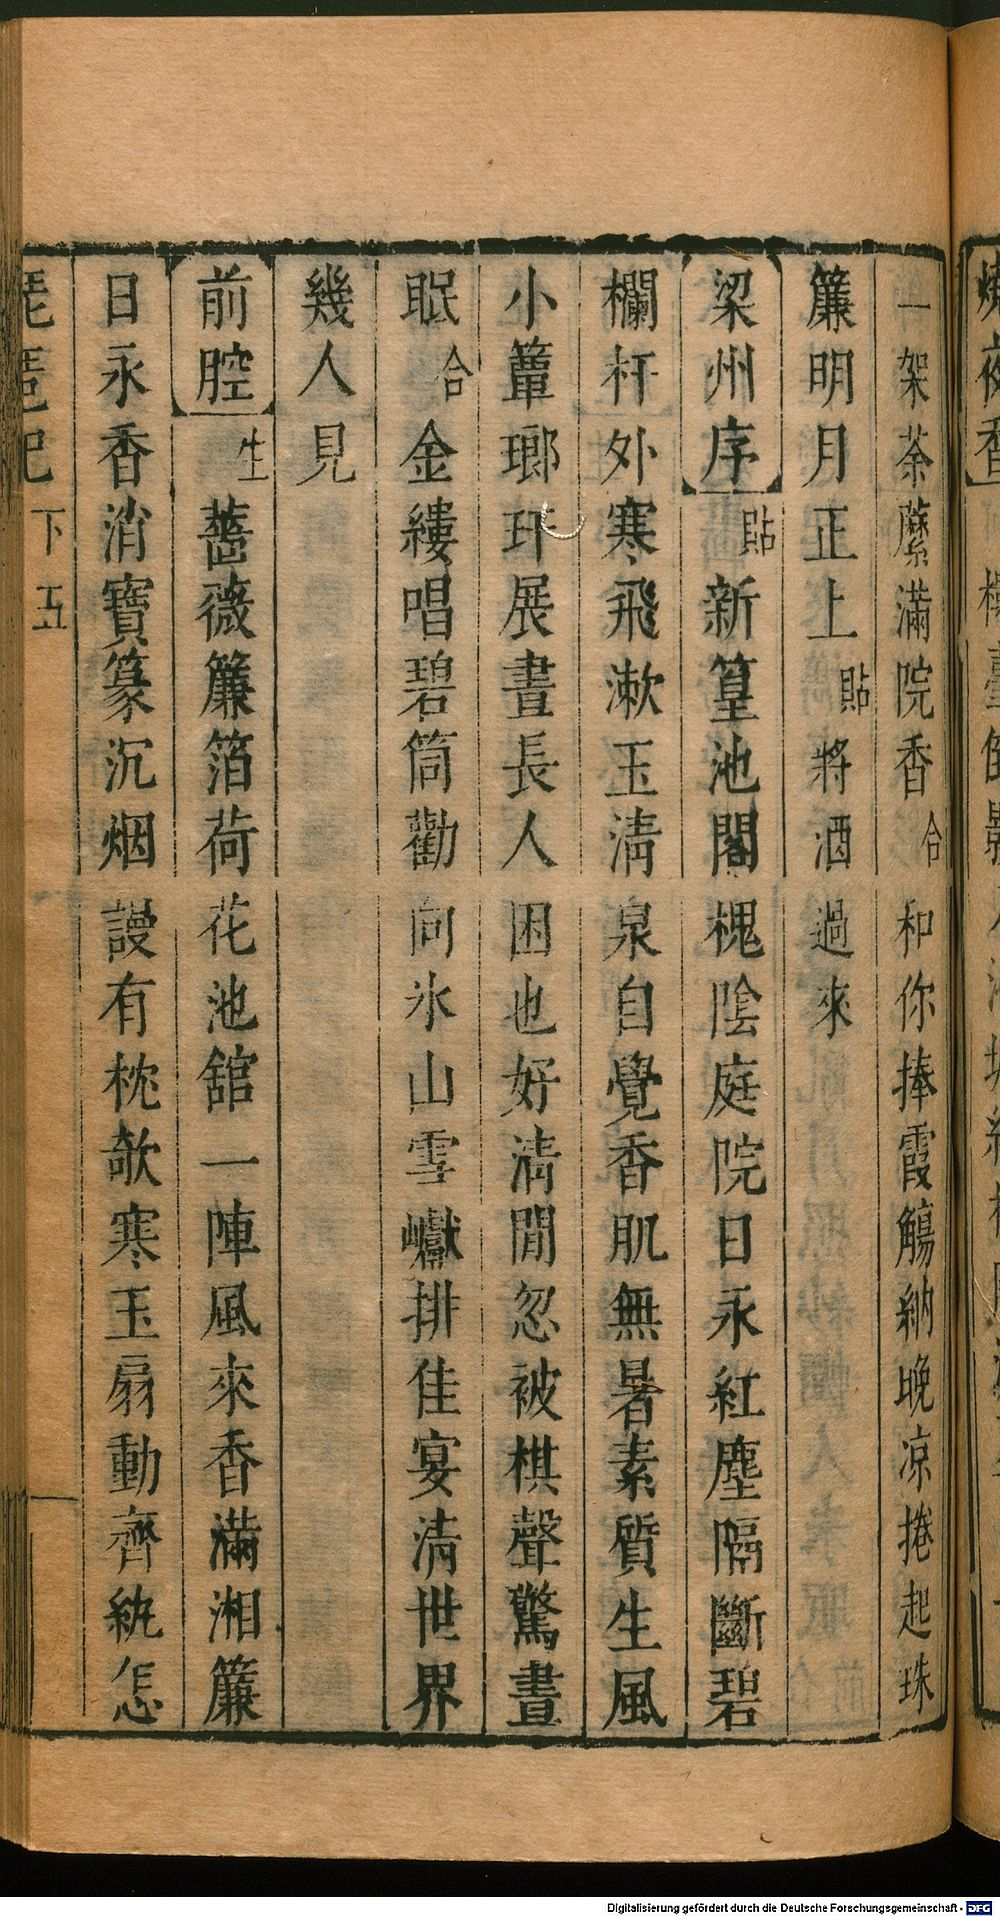 一架荼蘼滿院香合和你捧霞觴納晚凉捲起珠
簾明月正上貼將酒過來
梁州序貼新篁池閣槐陰庭院日永紅塵隔斷碧
欄杆外寒飛漱玉清泉自覺香肌無暑素質生風
小簟瑯玕展晝長人困也好清閒忽被棋聲驚晝
眠合金縷唱碧筒勸向氷山雪巘排佳宴清世界
幾人見
前腔生薔薇簾箔荷花池舘一陣風來香滿湘簾
日永香消寶篆沉烟謾有枕欹寒玉扇動齊紈怎
琵琶記下五
Digitalisierung gefördert durch die Deutsche Forschungsgemeinschaft - DFG